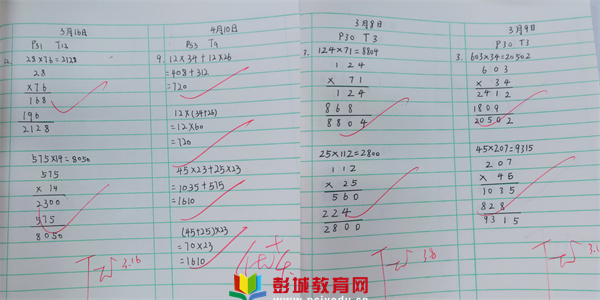 3月16日
P51 T12
28×76=2128
28
×76
168
196
2128
575×14=8050
575
× 14
2300
575
8050
3.16
4月10日
P53 T9
9. 12×34+12×26
=408+312
=720
12×(34+26)
=12×60
=720
45×23+25×23
=1035+575
=1610
(45+25)×23
=70×23
=1610
3月8日
P30 T3
3. 124×71=8804
124
× 71
124
868
8804
25×112=2800
112
× 25
560
224
2800
3.8
3月9日
P30 T3
3. 603×34=20502
603
× 34
2412
1809
20502
45×207=9315
207
× 45
1035
828
9315
彭城教育网